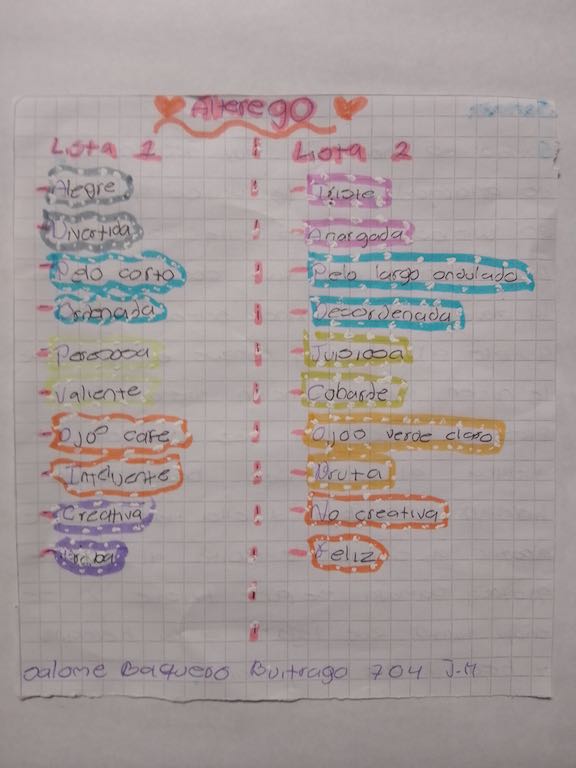 Alterego
Lista 1
Alegre
Divertida
Pelo corto
Ordenada
Peresosa
Valiente
Ojos cafe
Creativa
Lista 2
Triste
Amargada
Pelo largo ondulado
Desordenada
Juisiosa
Cobarde
Ojos verde claro
Bruta
No creativa
Feliz
Salome Baquero Buitrago 704 J.M